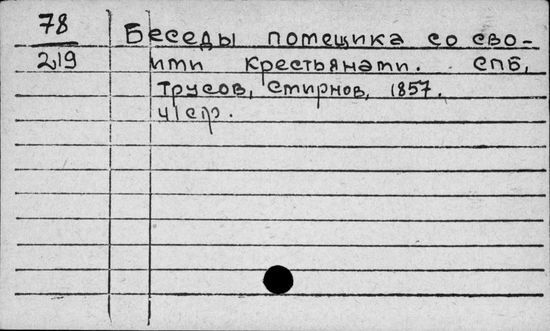 78
219
Беседы помещика со сво-
ими крестьянами. СПБ,
Трусов, Смирнов, 1857.
41 стр.